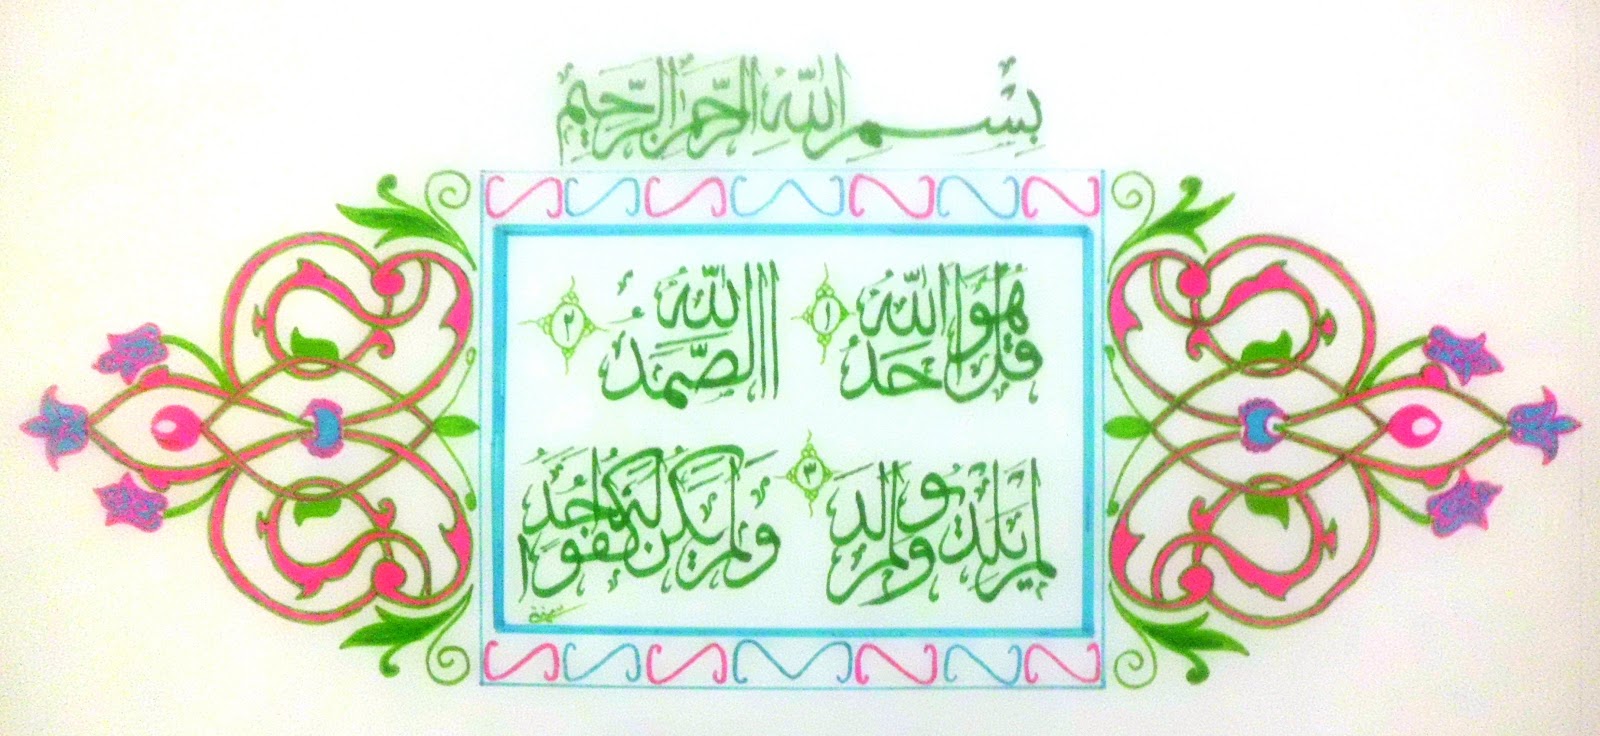 بِسْمِ اللّٰهِ الرَّحْمٰنِ الرَّحِيمِ
قُلْ هُوَ اللّٰهُ اَحَدٌ ١ اَللّٰهُ الصَّمَدُ ٢
لَمْ يَلِدْ وَلَمْ يُولَدْ ٣ وَلَمْ يَكُنْ لَهُ كُفُوًا اَحَدٌ